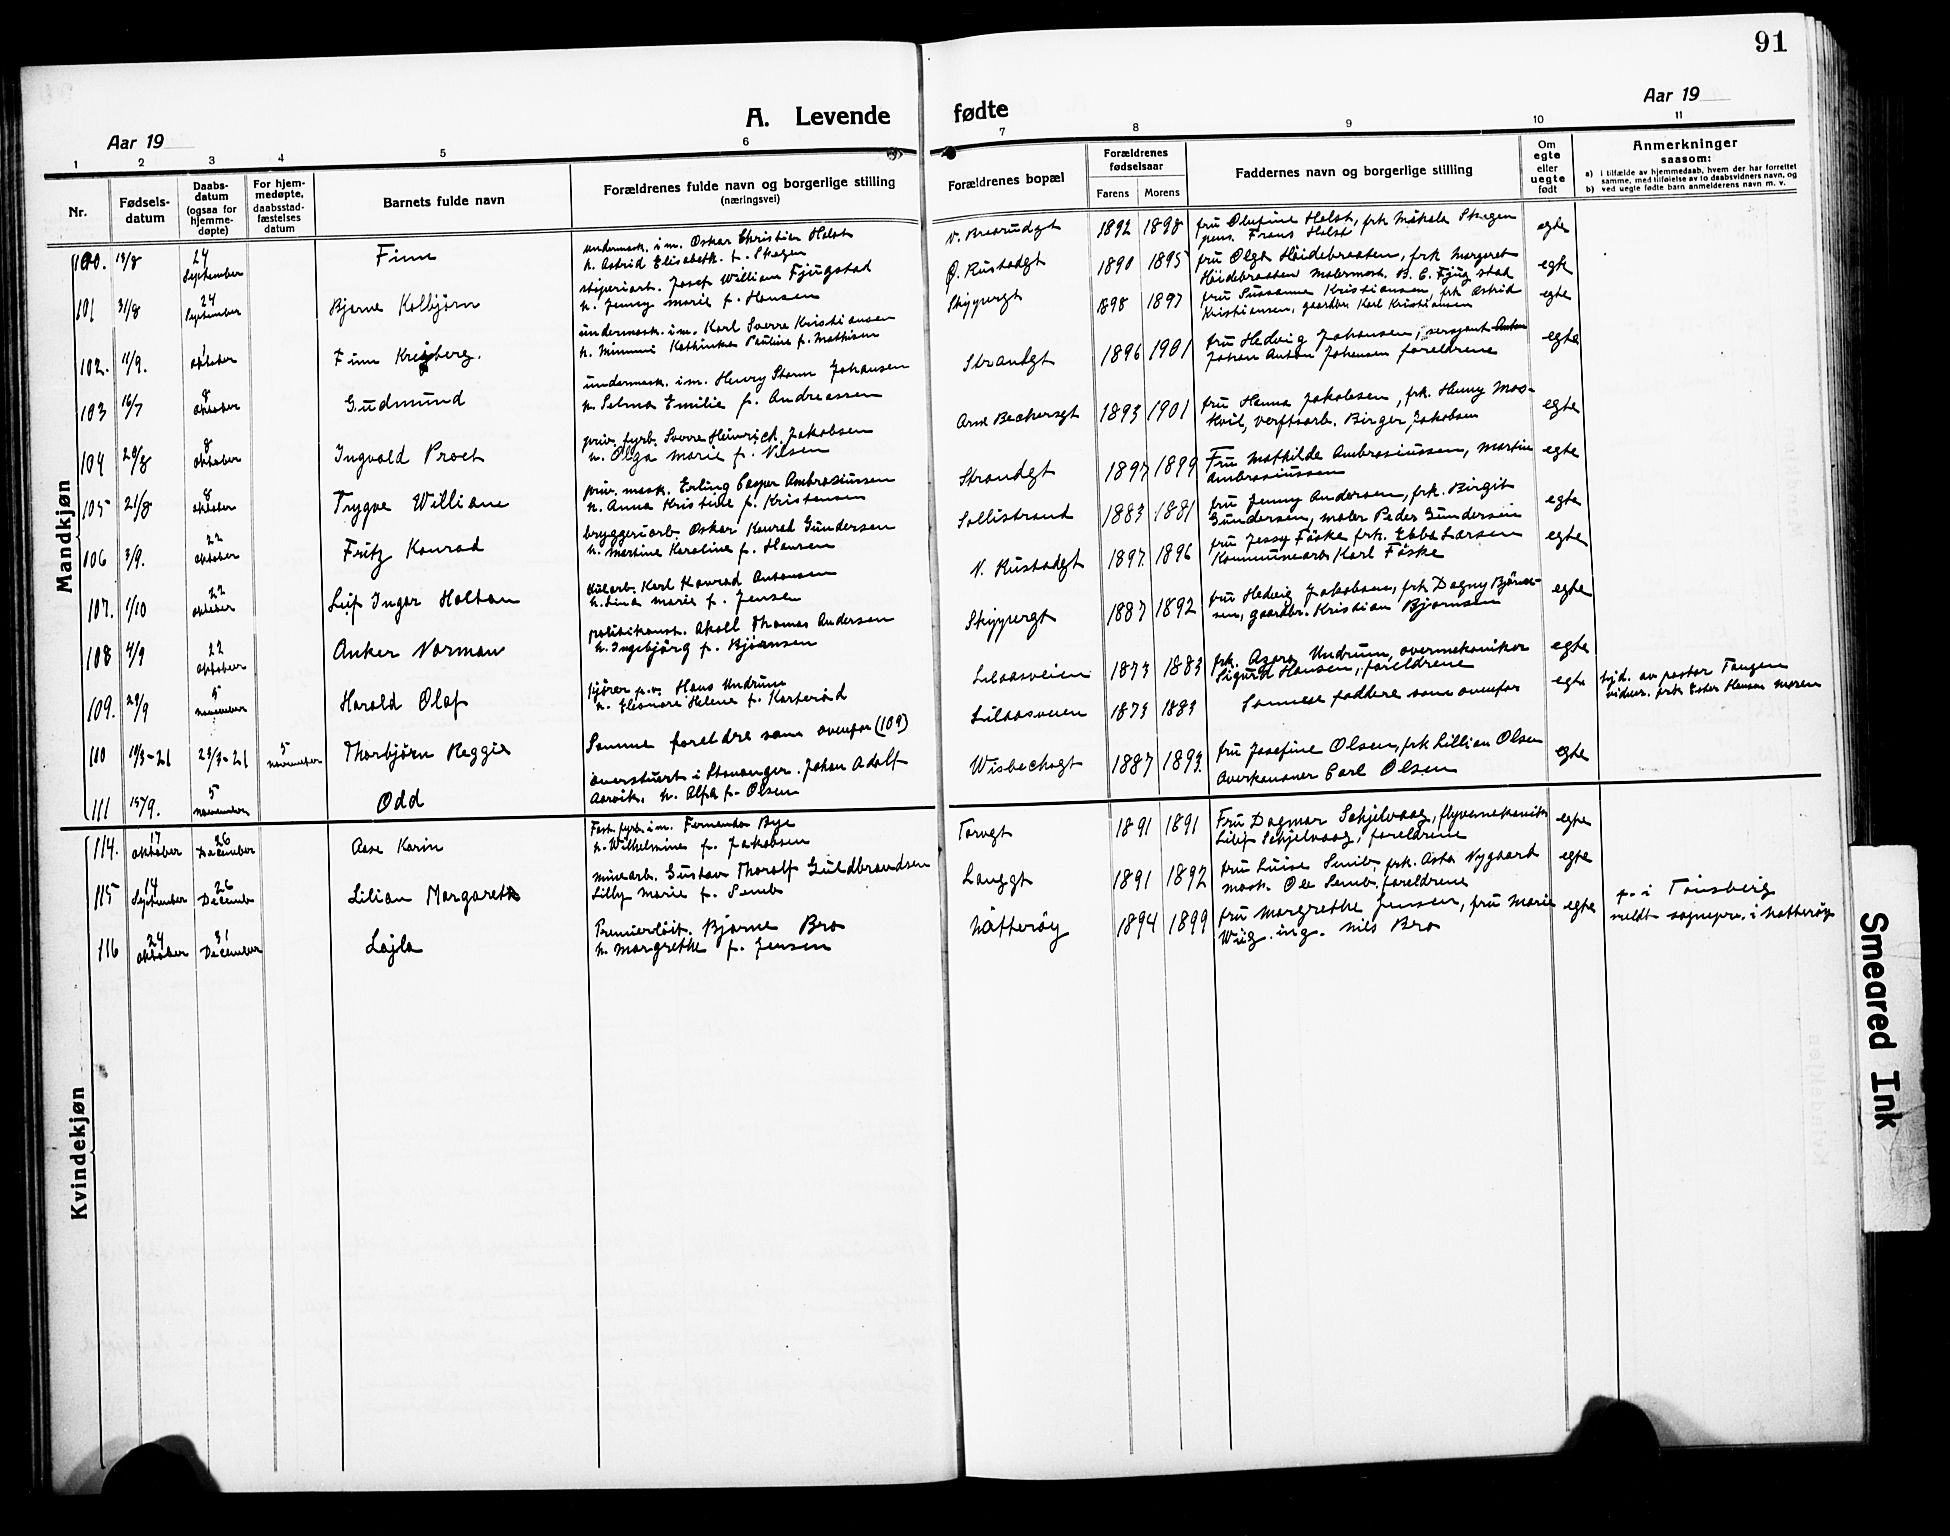 91
A. Levende fødte
Aar 19
Aar 19
1 2 3 4 5 6 7 8 9 10 11
Nr.
Fødsels-
datum
Daabs-
datum
(ogsaa for
hjemme-
døpte)
For hjem-
medøpte,
daabsstad-
fæstelses
datum
Barnets fulde navn
Forældrenes fulde navn og borgerlige stilling
(næringsvei)
Forældrenes bopæl
Forældrenes
fødselsaar
Farens Morens
Faddernes navn og borgerlige stilling
Om
egte
eller
uegte
født
Anmerkninger
saasom:
a) i tilfælde av hjemmedaab, hvem der har forrettet
samme, med tilføielse av to daabsvidners navn, og
b) ved uegte fødte barn anmelderens navn m. v.
Mandkjøn
100. 18/8 24 September Finn
undermask. i m. Oskar Christian Holst
h. Astrid Elisabeth f. Skagen
1892 1898
fru Olufine Holst, frk Mikala Skagen
pens. Frans Holst
egte
101 31/8 24 September Bjarne Kolbjørn
stiperiarb. Josef William Fjugstad
h. Jenny Marie f. Hansen
Ø. Rustadgt 1890 1895
fru Olga Höidebraaten, frk Margaret
Höidebraaten Malermest. B. C. Fjugstad
egte
102. 11/9. 1 oktober Finn Kregberg.
undermask. i m. Karl Sverre Kristiansen
h. Mimmi Kathinka Pauline f. Mathisen
Skippergt 1898 1897
fru Sussanne Kristiansen, frk Astrid
Kristiansen, gaardbr. Karl Kristiansen
egte
103 16/7 8 oktober Gudmund
undermask. i m. Henry Storm Johansen
h. Selma Emilie f. Andreassen
Strandgt 1896 1901
fru Hedvig Johansen, sersjant Anton
Johan Anton Johansen foreldrene
egte
104 29/8 8 oktober Ingvald Proet
priv. fyrb. Sverre Heinrich Jakobsen
h. Olga Marie f. Nilsen
Arne Beckersgt 1893 1901
fru Hanna Jakobsen, frk. Henny Mos-
kvil, verftsarb. Birger Jakobsen
egte
105 21/8 8 oktober Trygve William
priv. mask. Erling Casper Ambrosiussen
h. Anna Kristine f. Kristensen
Strandgt 1897 1899
Fru Mathilde Ambrosiussen, Martin
Ambrosiussen
egte
106 3/9. 22 oktober Fritz Konrad
bryggeriarb. Oskar Konrad Gundersen
h. Martine Karoline f. Hansen
Sollistrand 1883 1881
fru Jenny Andersen, frk. Birgit
Gundersen, maler Peder Gundersen
egte
107. 1/10 22 oktober Leif Ingar Holtan
kularb. Karl Konrad Antonsen
h. Lina Marie f. Jensen
N. Rustadgt 1897. 1896
fru Jessy Föske frk. Ebba Larsen
Kommunearb Karl Föske
egte
108 4/9 22 oktober Anker Norman
politikonst. Aksel Thomas Andersen
h. Ingebjörg f. Björnsen
Skippergt 1887 1892
fru Hedvig Jakobsen, frk Dagny Björn-
sen, gaardbr. Kristian Bjørnsen
egte
109. 29/9 5 november Harald Olaf
fyrer p.v. Hans Undrum
h. Eleonore Helene f. Karterød
Lilaasveien 1873 1883
frk. Asora Undrum, overmekaniker
Sigurd Hansen, foreldrene
egte
110 10/3-21 23/3-21 5 november Thorbjørn Reggie
Samme foreldre som ovenfor (109)
Lilaasveien 1873 1883
Samme faddere som ovenfor
egte
hjd. av pastor Tangen
vidner. frk Ester Hansen Moren
111 15/9. 5 november Odd
overstuert i Stavanger. Johan Adolf
Aarvik. h. Alfa f. Olsen
Wisbechsgt 1887 1893.
fru Josefine Olsen, frk Lillian Olsen
Overkanoner Carl Olsen
egte
Kvindekjøn
114. 17 oktober 26 December Aase Karin
Fast fyrb. i m. Fernando Bye
h. Wilhelmine f. Jakobsen
Torvgt 1891 1891
Fru Dagmar Schjelvaag, flyvemekanik
Leif Schjelvaag, foreldrene
egte
115 14 September 26 Decemb Lilian Margareth
minearb. Gustav Thoralf Guldbrandsen
Lilly Marie f. Semb
Langgt 1891 1892
fru Luise Semb, frk. Asta Nygaard
mask. Ole Semb. foreldrene
egte
116 24 oktober 31 December Lajla
Premierløit. Bjarne Bro
h. Margrethe f. Jensen
Nätterøy 1894 1899
fru Margrethe Jensen, fru Marie
Wiig. ing. Nils Bro
egte
f. i Tönsberg
meldt sognepr. i Nøtterøy
Smeared Ink